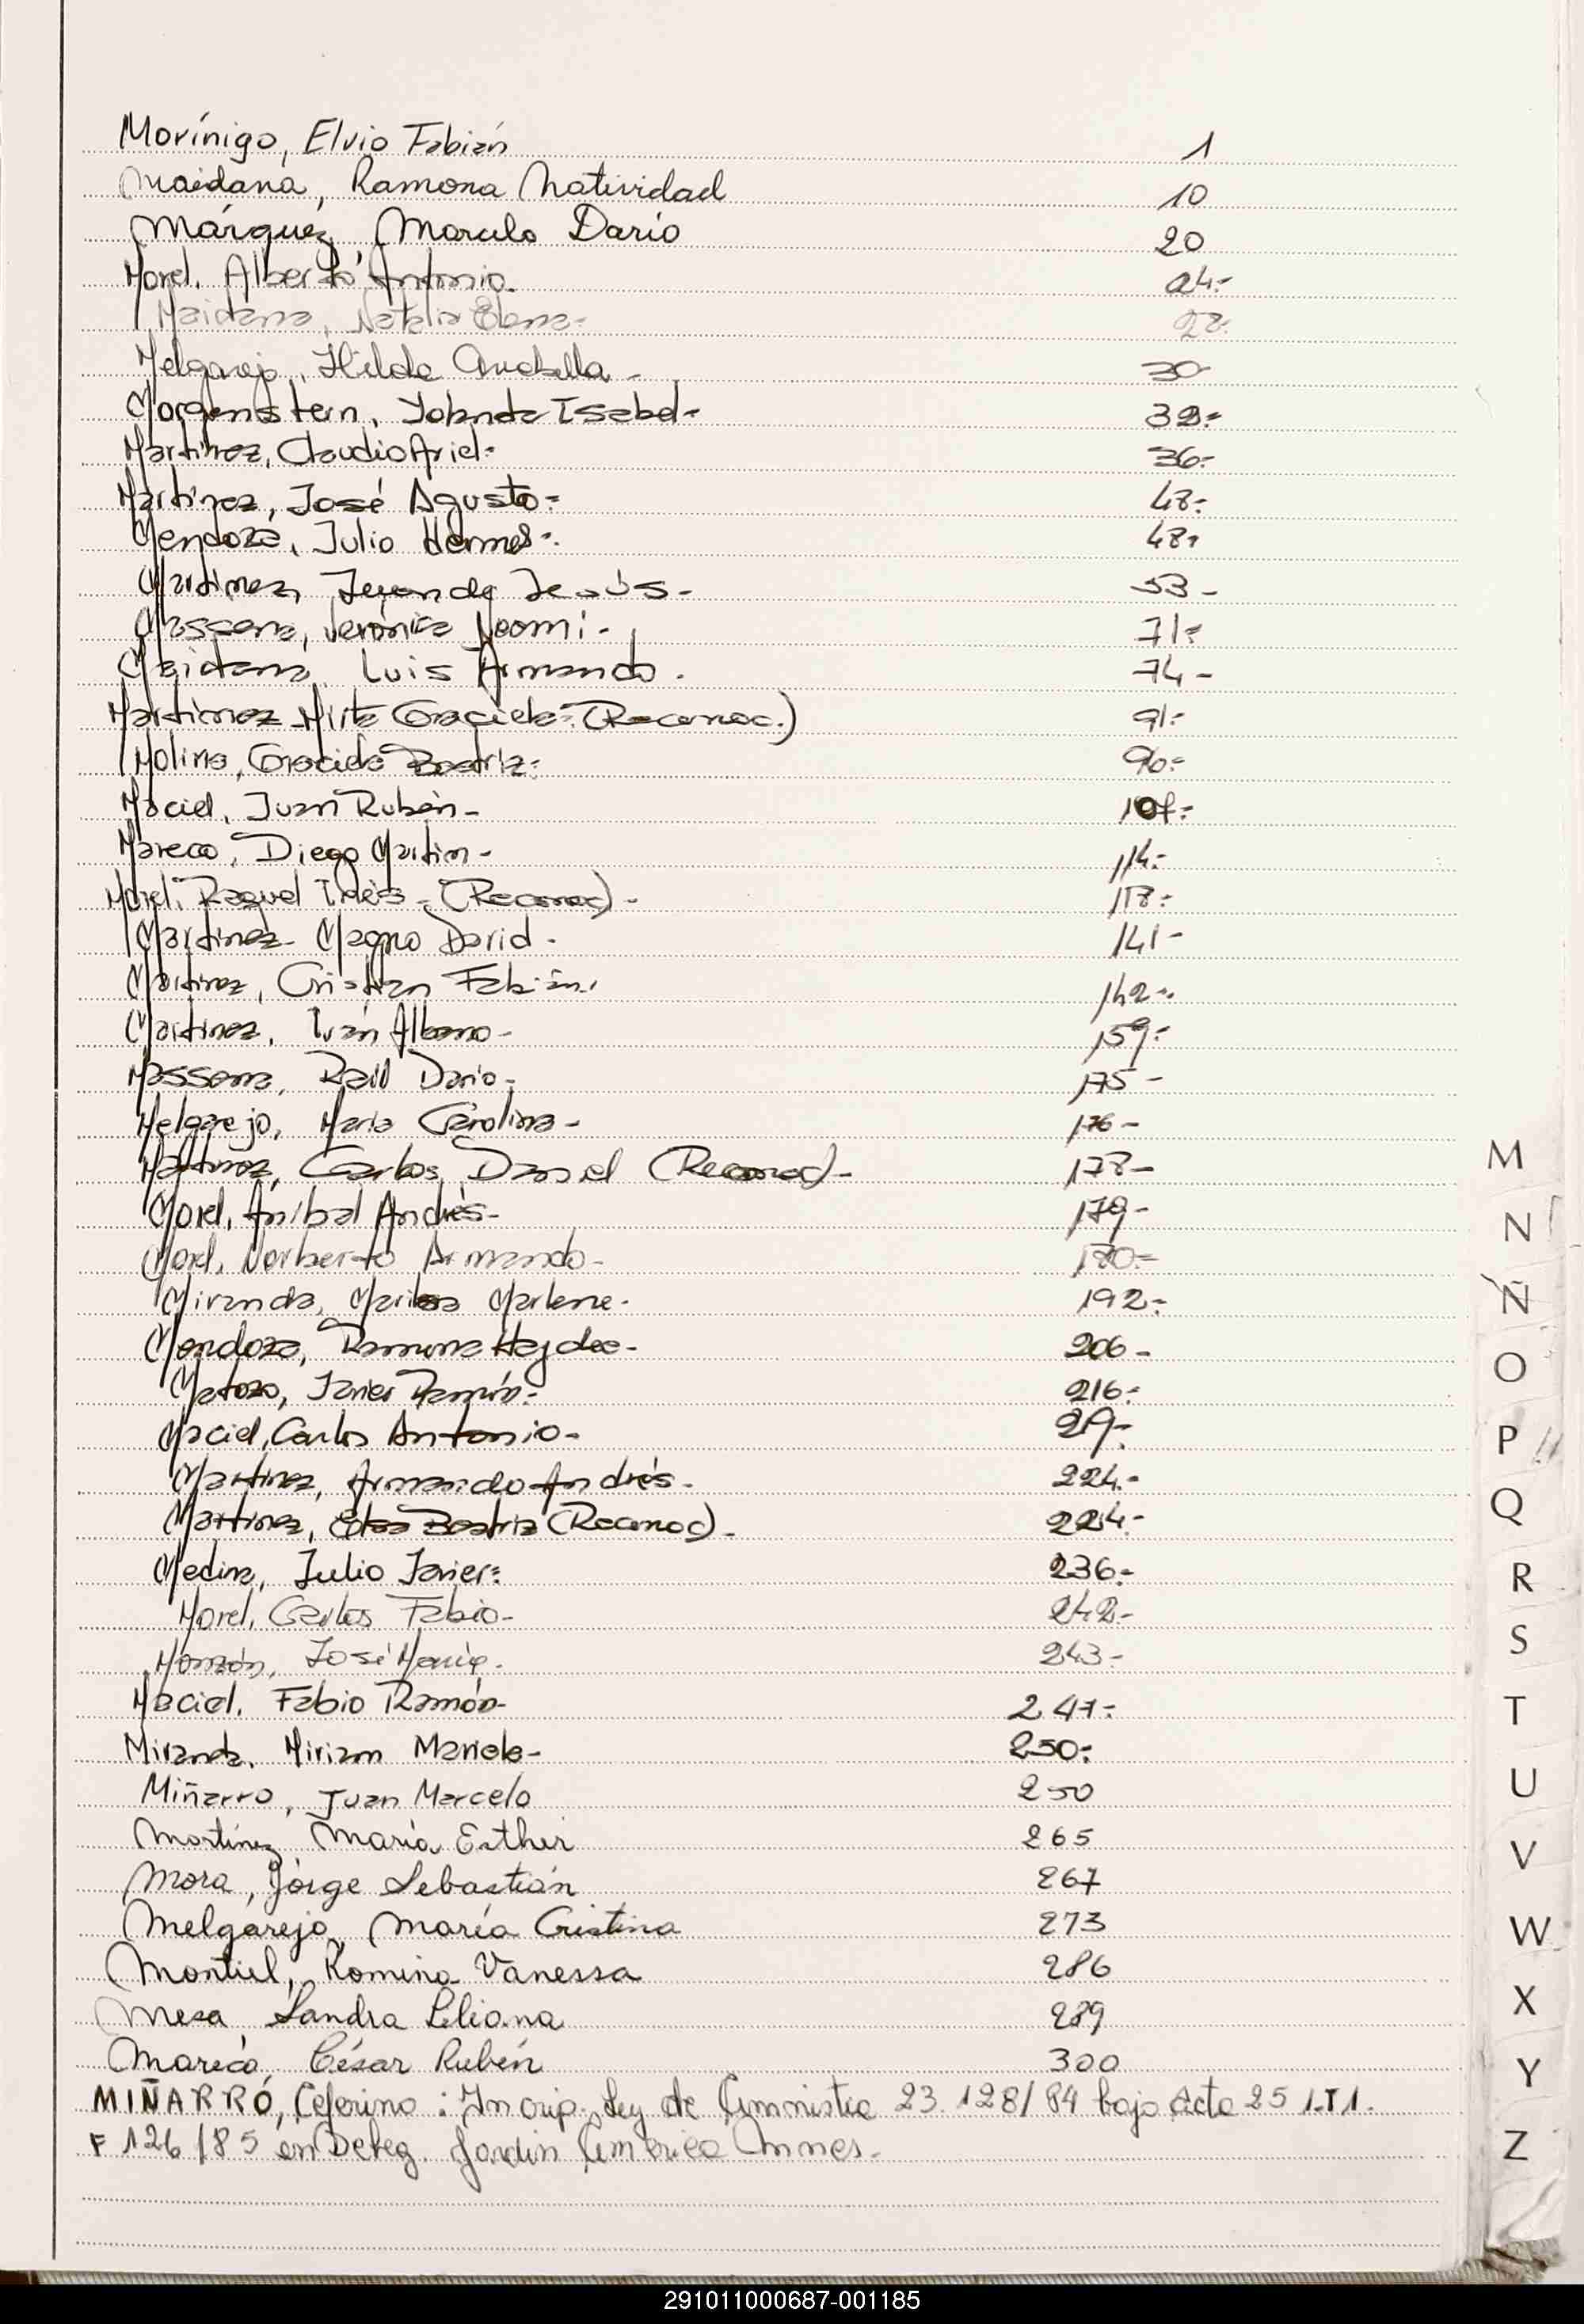 Morínigo, Elvio Fabián 1
Maidana, Ramona Natividad 10
Márquez, Marcelo Darío 20
Morel, Alberto Antonio. 24.-
Maidana, Natalia Elena.- 28.
Melgarejo, Hilda Anabella - 30-
Morgenstern, Yolanda Isabel.- 32.-
Martínez, Claudio Ariel.- 36.-
Martínez, José Agusto.- 48.-
Mendoza, Julio Hermes.- 48.-
Martínez, de Jesús.- 53 -
Verónica Noemi.- 71.-
Maidana, Luis Armando. 74 -
Martinez Mirta Graciela.- (Reconoc.) 91.-
Molina, Graciela Beatriz.- 96.-
Maciel, Juan Rubén.- 107.-
Mareco, Diego Martin - 114.-
Morel, Raquel Inés - (Reconoc) - 118.-
Martínez Magno David - 141 -
Martinez, Cristian Fabián. 142 -
Martinez, Iván Albano - 159.-
Massena, Raúl Dario.- 175 -
Melgarejo, Maria Carolina - 176 -
Martínez, Carlos Daniel (Reconoc) - 178 -
Morel, Aníbal Andrés.- 179 -
Morel, Norberto Armando - 180.-
Miranda, Marisa Marlene.- 192.-
Mendoza, Ramona Haydee.- 206 -
Matozo, Javier Ramón.- 216.-
Maciel, Carlos Antonio.- 217.-
Martinez, Armando Andrés.- 224.-
Martínez, Elsa Beatriz (Reconoc) - 224.-
Medina, Julio Javier.- 236.-
Morel, Carlos Fabio.- 242.-
Monzón, José María. 243.-
Maciel, Fabio Ramón- 247.-
Miranda, Miriam Mariela- 250.-
Miñarro, Juan Marcelo 250
Martínez, María Esther 265
Mora, Jorge Sebastián 267
Melgarejo, María Cristina 273
Montiel, Romina Vanessa 286
Mesa, Sandra Liliana 289
Mareco, César Rubén 300
MIÑARRO, Ceferino: Inscrip. Ley de Amnistia 23.128/84 bajo Acta 25 1.T1.
F 126/85 en Deleg. Jardin América Mnes.-
M
N
Ñ
O
P
Q
R
S
T
U
V
W
X
Y
Z
291011000687-001185